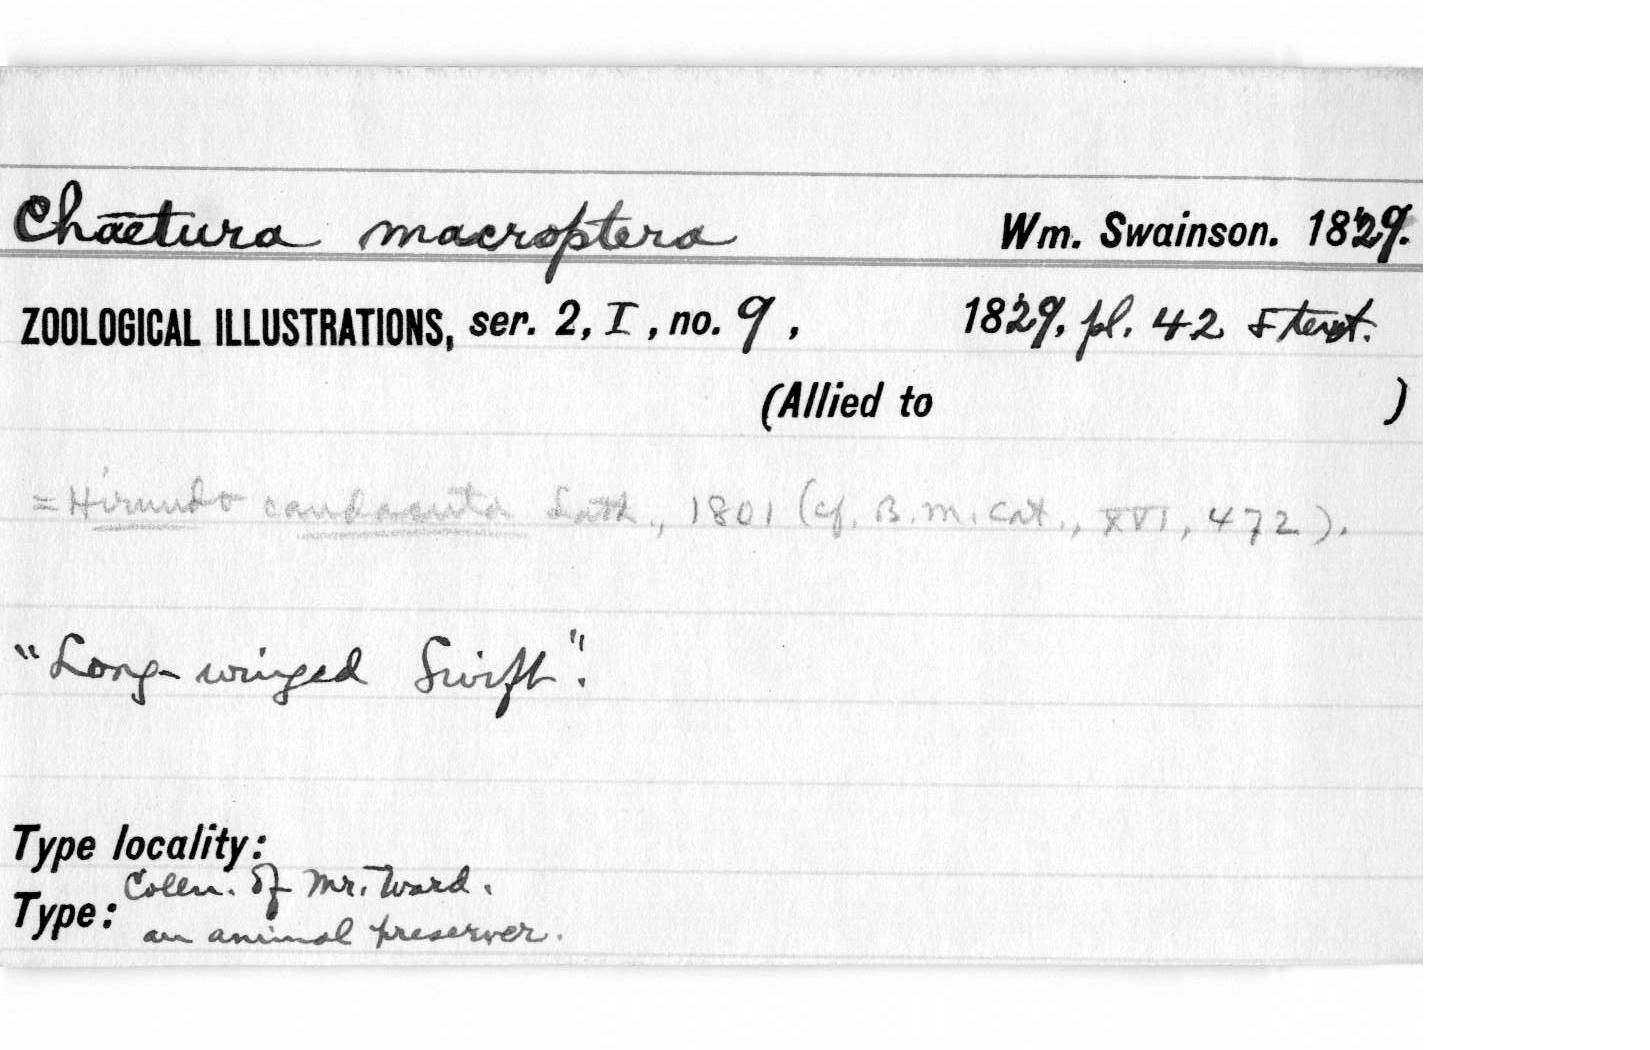 Chaetura macroptera Wm. Swainson. 1829.
ZOOLOGICAL ILLUSTRATIONS, ser. 2, I, no. 9, 1829, pl. 42 & text.
(Allied to )
= Hirundo caudacuta Lath., 1801 (cf. B.M. Cat., XVI, 472).
"Long-winged Swift".
Type locality:
Type: Colln. of Mr. Ward.
an animal preserver.